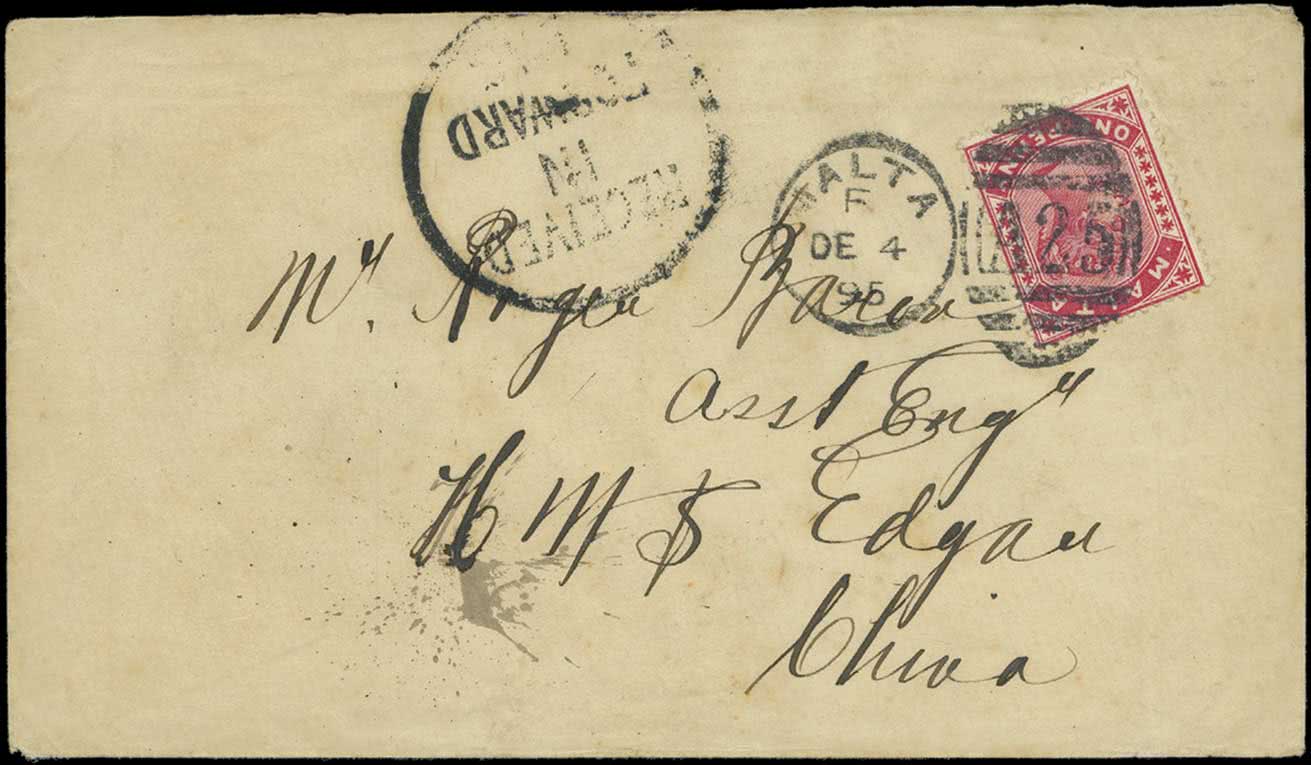 RECEIVED
IN
FORWARD
MALTA
F
DE 4
95
A25
ONE PENNY
MALTA
Mr. Roger Baron
Asst Engr
HMS Edgar
China